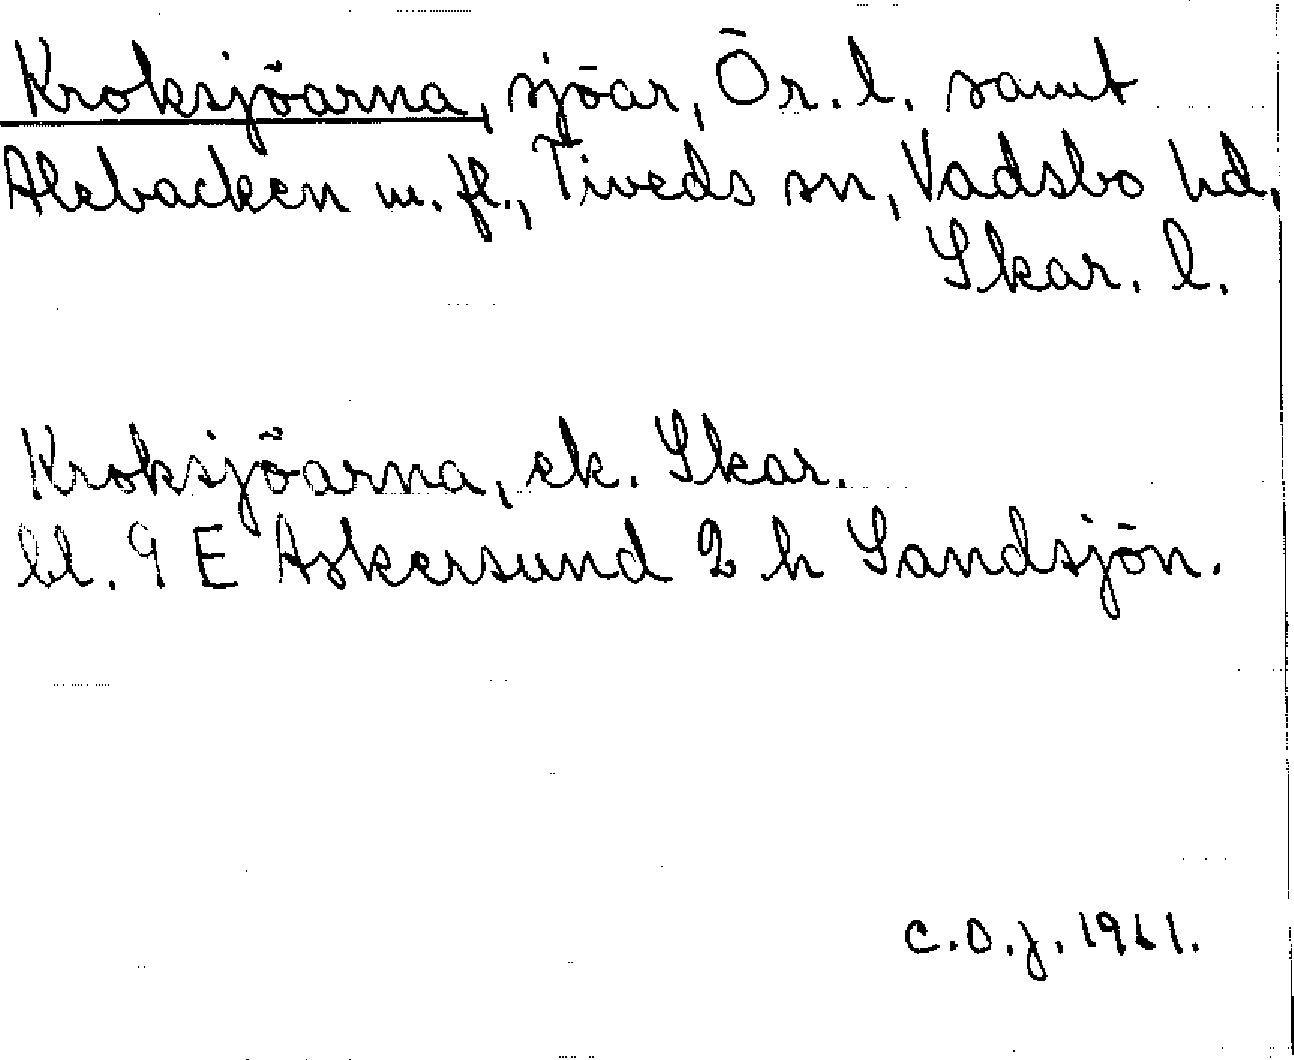 Kroksjöarna, sjöar, Ör. l. samt
Alebacken m. fl., Tiveds sn, Vadsbo hd,
Skar. l.
Kroksjöarna, ek. Skar.
bl. 9 E Askersund 2 h Sandsjön.
C.O.J. 1961.